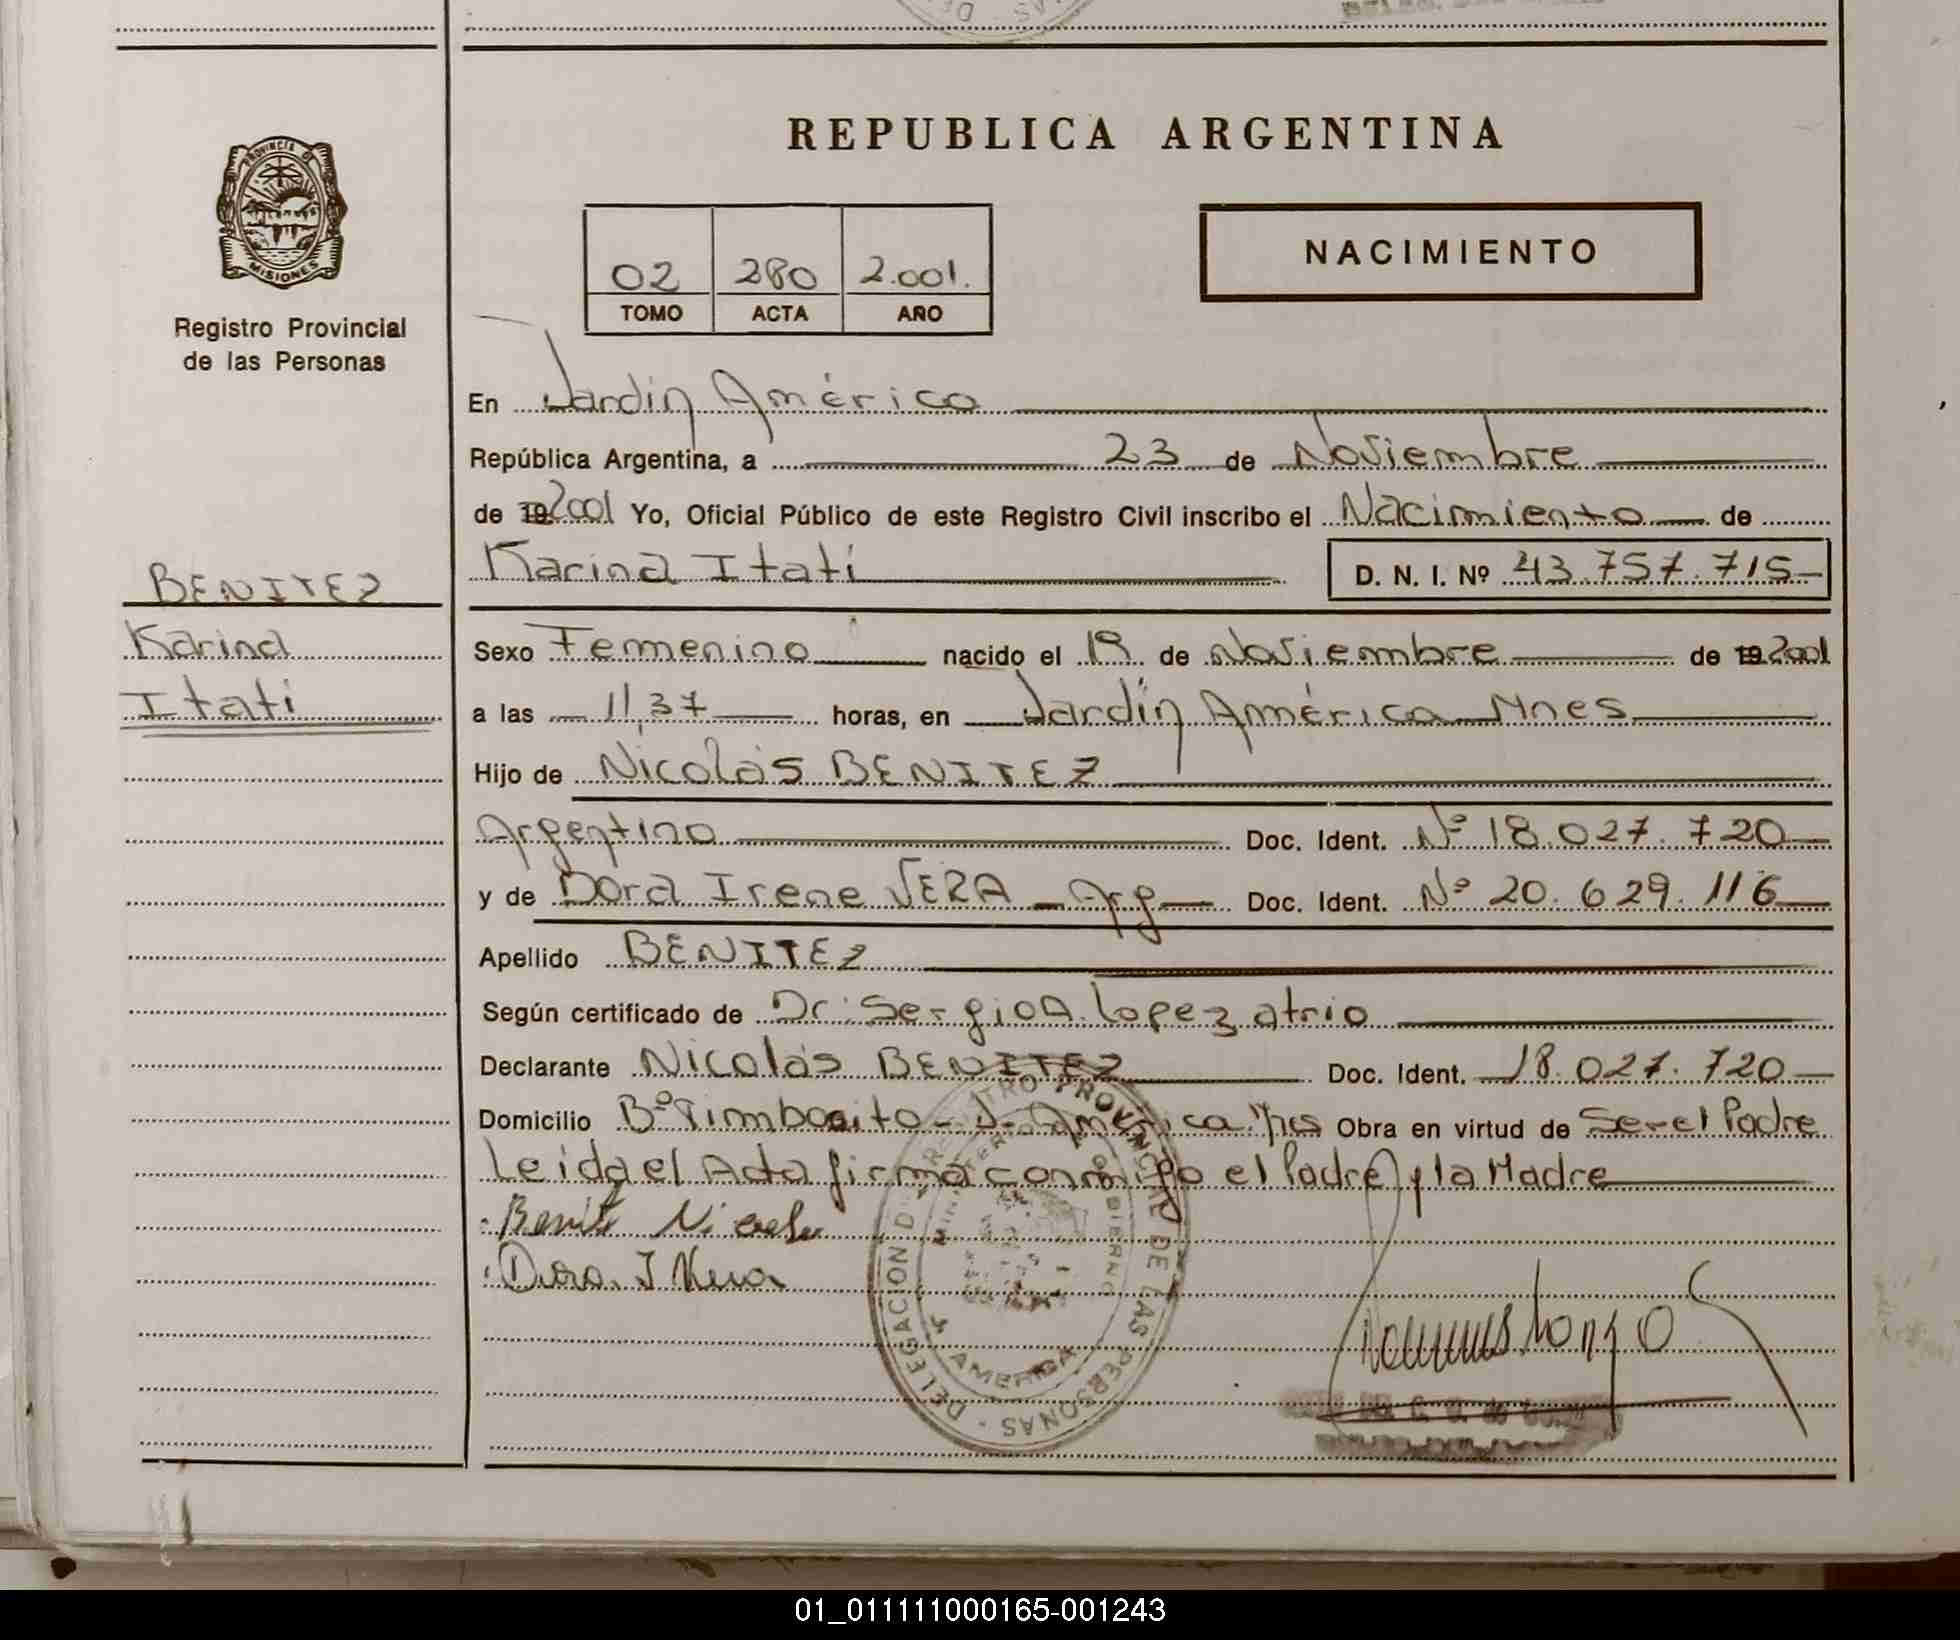 REPUBLICA ARGENTINA
PROVINCIA DE
MISIONES
Registro Provincial
de las Personas
02 280 2.001.
TOMO ACTA AÑO
NACIMIENTO
En Jardín América
República Argentina, a 23 de Noviembre
de 19 2001 Yo, Oficial Público de este Registro Civil inscribo el Nacimiento de
Karina Itatí D. N. I. Nº 43.757.715
BENITEZ
Karina
Itatí
Sexo Femenino nacido el 19 de Noviembre de 19 2001
a las 11,37 horas, en Jardín América Mnes
Hijo de Nicolás BENITEZ
Argentino Doc. Ident. Nº 18.027.720
y de Dora Irene VERA - Arg Doc. Ident. Nº 20.629.116
Apellido BENITEZ
Según certificado de Dr: Sergio A. Lopez atrio
Declarante Nicolás BENITEZ Doc. Ident. 18.027.720
Domicilio Bº Timbocito - J. América Mnes Obra en virtud de Ser el Padre
Leida el Acta firma conmigo el Padre y la Madre
Benite Nicolas
Dora I Vera
DELEGACION REGISTRO PROVINCIAL DE LAS PERSONAS
AMERICA
01_011111000165-001243